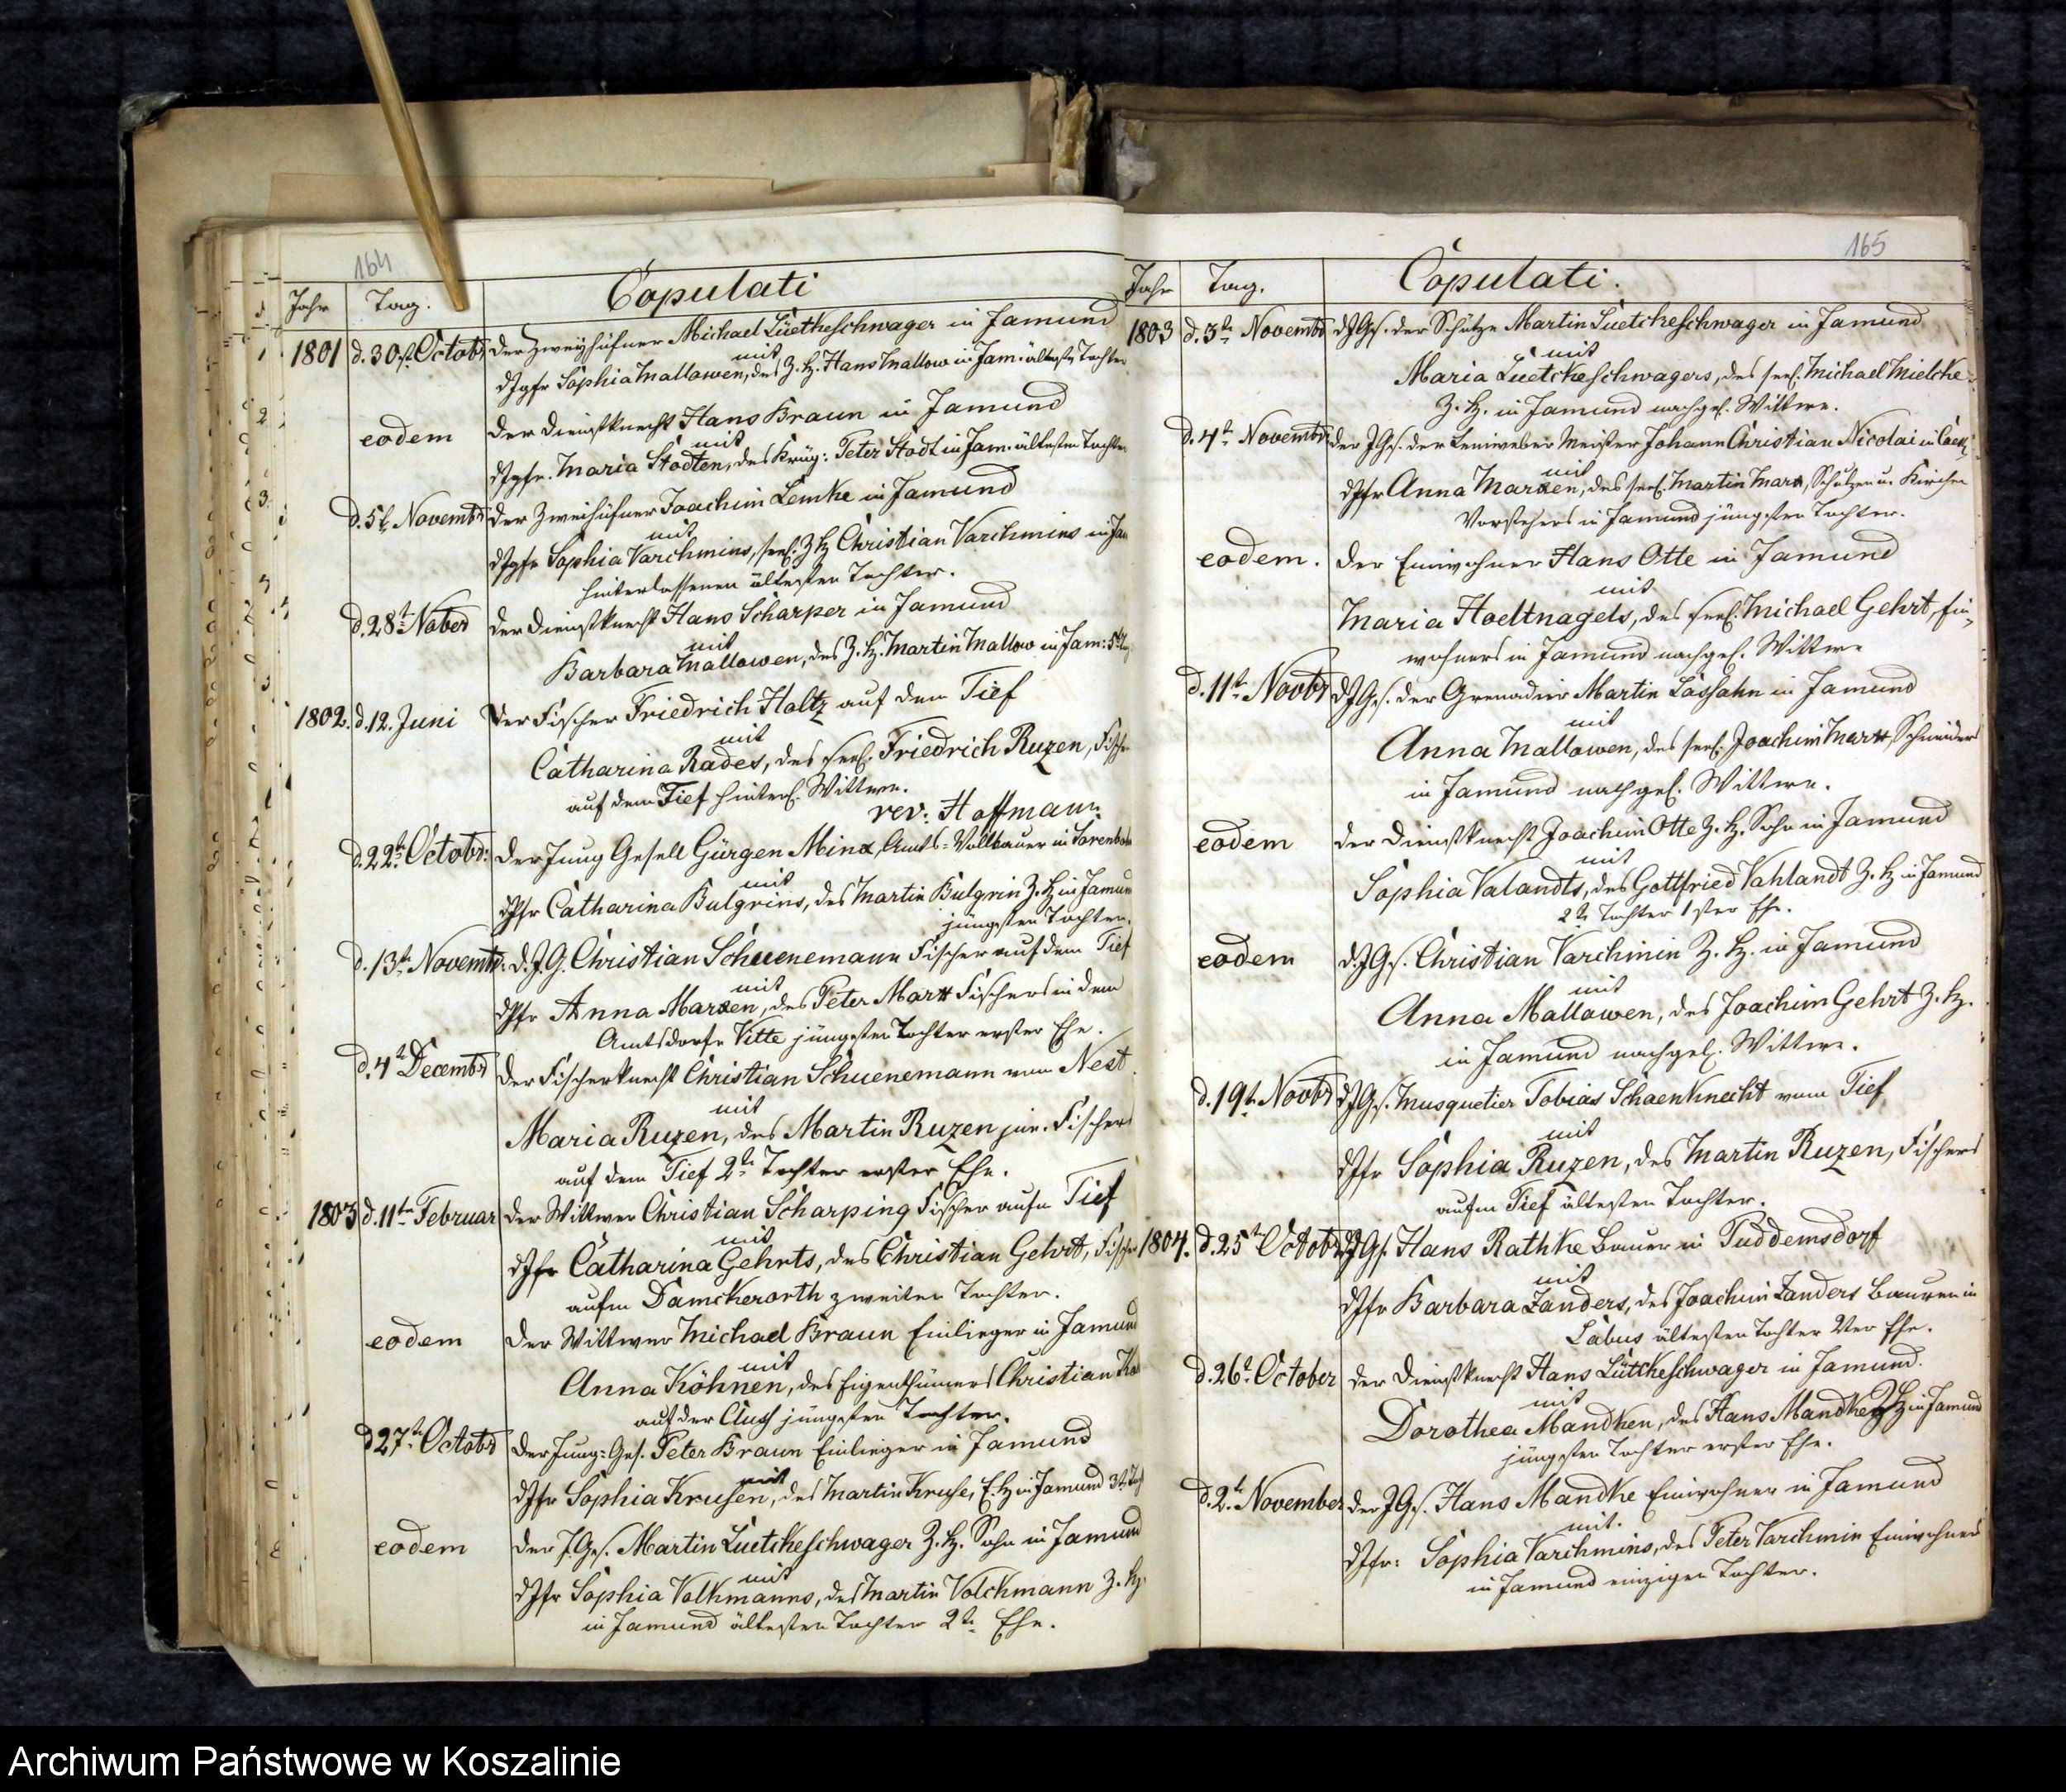 164
Jahr Tag. Copulati
1801 d. 30st. Octobr der Zweyhüfner Michael Lüetkeschwager in Jamund
mit
d Jgfr Sophia Mallowen, des Z. H. Hans Mallow in Jam: älteste Tochter
eodem der Dienstknecht Hans Braun in Jamund
mit
d Jgfr. Maria Stodten, des Krüg: Peter Stodt in Jam. ältesten Tochter
d. 5t. Novembr der Zweihüfner Joachim Lemke in Jamund
mit
d Jgfr Sophia Varchmins, seel. Z H Christian Varchmins in Jam
hinterlassenen ältesten Tochter.
d. 28t. Nober der Dienstknecht Hans Scharper in Jamund
mit
Barbara Mallowen, des Z. H. Martin Mallow in Jam: 5te
1802. d. 12. Juni der Fischer Friedrich Holtz auf dem Tief
mit
Catharina Rades, des seel. Friedrich Ruzen, Fischr
auf dem Tief hinterl. Wittwe.
rev: Hoffmann
d. 22t. Octobr: der Jung Gesell Gürgen Minx, Amts-Vollbauer in Sorenbohm
mit
d Jfr Catharina Bulgrins, des Martin Bulgrin Z. H. in Jamund
jüngsten Tochter.
d. 13t. Novembr: d. J. G. Christian Schuenemann Fischer auf dem Tief
mit
d Jfr Anna Marxen, des Peter Marx Fischers in dem
Amtsdorfe Vitte jüngsten Tochter erster Ehe.
d. 4t. Decembr der Fischerknecht Christian Schuenemann vom Nest
mit
Maria Ruzen, des Martin Ruzen jun. Fischers
auf dem Tief 2te Tochter erster Ehe.
1803 d. 11ten Februar der Wittwer Christian Scharping Fischer aufm Tief
mit
d Jfr Catharina Gehrts, des Christian Gehrt, Fischr
aufm Damckerorth zweiten Tochter.
eodem der Wittwer Michael Braun Einlieger in Jamund
mit
Anna Köhnen, des Eigenthümers Christian
auf der jüngsten Tochter.
d 27t. Octobr der Jung: Ges. Peter Braun Einlieger in Jamund
mit
d Jfr Sophia Krusen, des Martin Kruse, E. H. in Jamund 3te
eodem der J. Ges. Martin Luetckeschwager Z. H. Sohn in Jamund
mit
d Jfr Sophia Volkmanns, des Martin Volckmann Z. H.
in Jamund ältesten Tochter 2te Ehe.
165
Jahr Tag. Copulati.
1803 d. 3t. Novembr d J Gs. der Schütze Martin Luetckeschwager in Jamund
mit
Maria Luetckeschwagers, des seel. Michael Mielcke
Z. H. in Jamund nachgel. Wittwe.
d. 4t. Novembr der J Gs. der Leinweber Meister Johann Christian Nicolai in
mit
d Jfr Anna Marxen, des seel. Martin Marx, Schulzen u. Kirchen
Vorstehers in Jamund jüngsten Tochter.
eodem. der Einwohner Hans Otte in Jamund
mit
Maria Hoeltnagels, des seel. Michael Gehrt, Ein-
wohners in Jamund nachgel. Wittwe
d. 11t. Novbr d J Gs. der Grenadier Martin Lassahn in Jamund
mit
Anna Mallowen, des seel. Joachim Marx, Schneiders
in Jamund nachgel. Wittwe.
eodem der Dienstknecht Joachim Otte Z. H. Sohn in Jamund
mit
Sophia Valandts, des Gottfried Vahlandt Z. H. in Jamund
2te Tochter 1ster Ehe.
eodem d. J Gs. Christian Varchmin Z. H. in Jamund
mit
Anna Mallowen, des Joachim Gehrt Z. H.
in Jamund nachgel. Wittwe.
d. 19t. Novbr d J Gs. Musquetier Tobias Schaenknecht vom Tief
mit
d Jfr Sophia Ruzen, des Martin Ruzen, Fischers
aufm Tief ältesten Tochter.
1804. d. 25t. Octobr d J Gs. Hans Rathke Bauer in Puddemsdorf
mit
d Jfr Barbara Zanders, des Joachim Zanders Bauren in
Labus ältesten Tochter 2ter Ehe.
d. 26t. October der Dienstknecht Hans Lütckeschwager in Jamund.
mit
Dorothea Mandken, des Hans Mandke Z H in Jamund
jüngsten Tochter erster Ehe.
d. 2t. November der J Gs. Hans Mandke Einwohner in Jamund
mit.
d Jfr: Sophia Varchmins, des Peter Varchmin Einwohners
in Jamund einzigen Tochter.
Archiwum Państwowe w Koszalinie